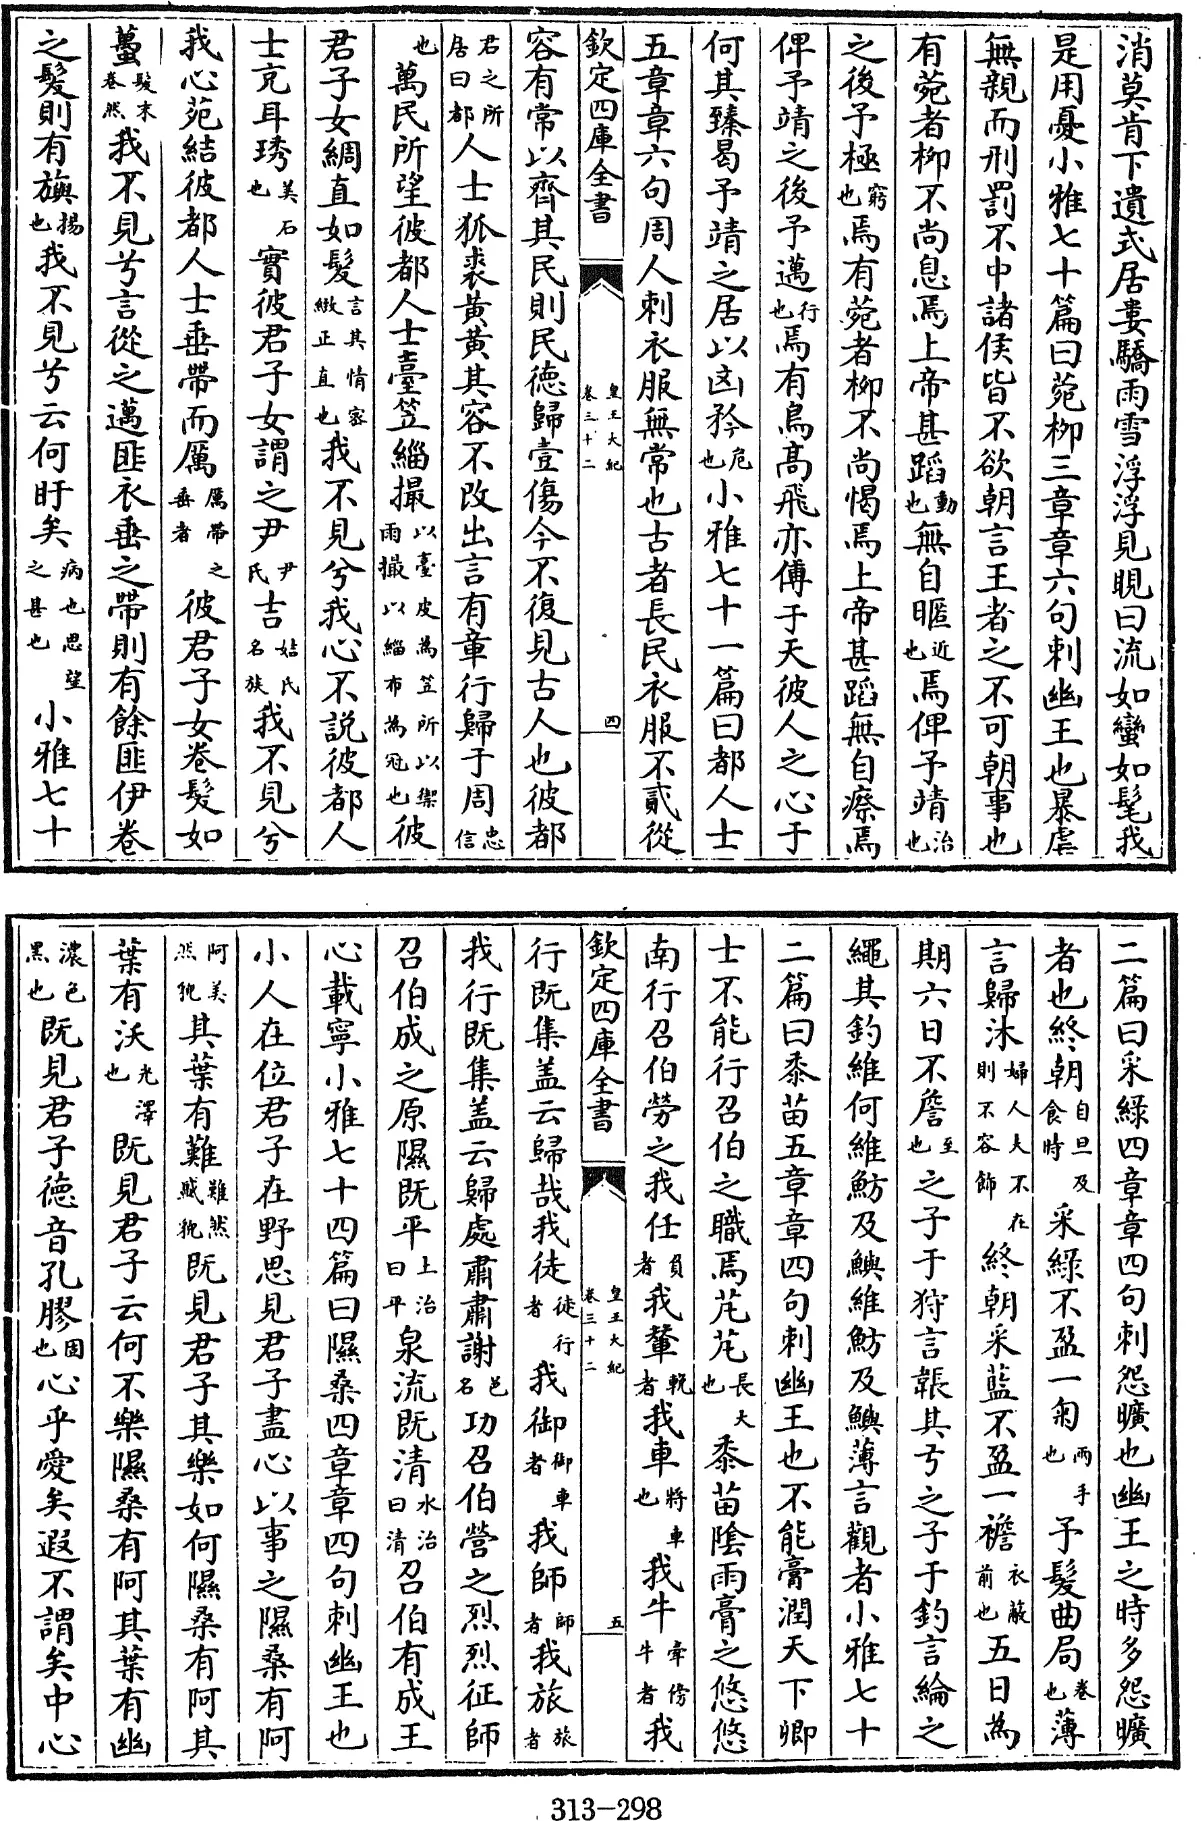 消莫肯下遺式居婁驕雨雪浮浮見晛曰流如蠻如髦我
是用憂小雅七十篇曰菀柳三章章六句刺幽王也暴虐
無親而刑罰不中諸侯皆不欲朝言王者之不可朝事也
有菀者柳不尚息焉上帝甚蹈動也無自暱近也焉俾予靖治也
之後予極窮也焉有菀者柳不尚愒焉上帝甚蹈無自瘵焉
俾予靖之後予邁行也焉有鳥髙飛亦傅于天彼人之心于
何其臻曷予靖之居以凶矜危也小雅七十一篇曰都人士
五章章六句周人刺衣服無常也古者長民衣服不貳從
欽定四庫全書
皇王大紀
卷三十二
四
容有常以齊其民則民徳歸壹傷今不復見古人也彼都
君之所居曰都人士狐裘黄黄其容不改出言有章行歸于周忠信
也萬民所望彼都人士臺笠緇撮以臺皮為笠所以禦雨撮以緇布為冠也彼
君子女綢直如髮言其情密緻正直也我不見兮我心不説彼都人
士充耳琇美石也實彼君子女謂之尹尹氏吉姞氏名族我不見兮
我心苑結彼都人士垂帶而厲厲帶之垂者彼君子女卷髮如
蠆髮末卷然我不見兮言從之邁匪衣垂之帶則有餘匪伊卷
之髮則有旟揚也我不見兮云何盱矣病也思望之甚也小雅七十
二篇曰采緑四章章四句刺怨曠也幽王之時多怨曠
者也終朝自旦及食時采緑不盈一匊兩手也予髮曲局卷也薄
言歸沐婦人夫不在則不容飾終朝采藍不盈一襜衣蔽前也五日為
期六日不詹至也之子于狩言韔其弓之子于釣言綸之
繩其釣維何維魴及鱮維魴及鱮薄言觀者小雅七十
二篇曰黍苗五章章四句刺幽王也不能膏潤天下卿
士不能行召伯之職焉芃芃長大也黍苗陰雨膏之悠悠
南行召伯勞之我任負者我輦輓者我車將車也我牛牽傍牛者我
欽定四庫全書
皇王大紀
卷三十二
五
行既集盖云歸哉我徒徒行者我御御車者我師師者我旅旅者
我行既集盖云歸處肅肅謝邑名功召伯營之烈烈征師
召伯成之原隰既平上治曰平泉流既清水治曰清召伯有成王
心載寧小雅七十四篇曰隰桑四章章四句刺幽王也
小人在位君子在野思見君子盡心以事之隰桑有阿
阿美然貌其葉有難難然盛貌既見君子其樂如何隰桑有阿其
葉有沃光澤也既見君子云何不樂隰桑有阿其葉有幽
濃色黑也既見君子徳音孔膠固也心乎愛矣遐不謂矣中心
313-298